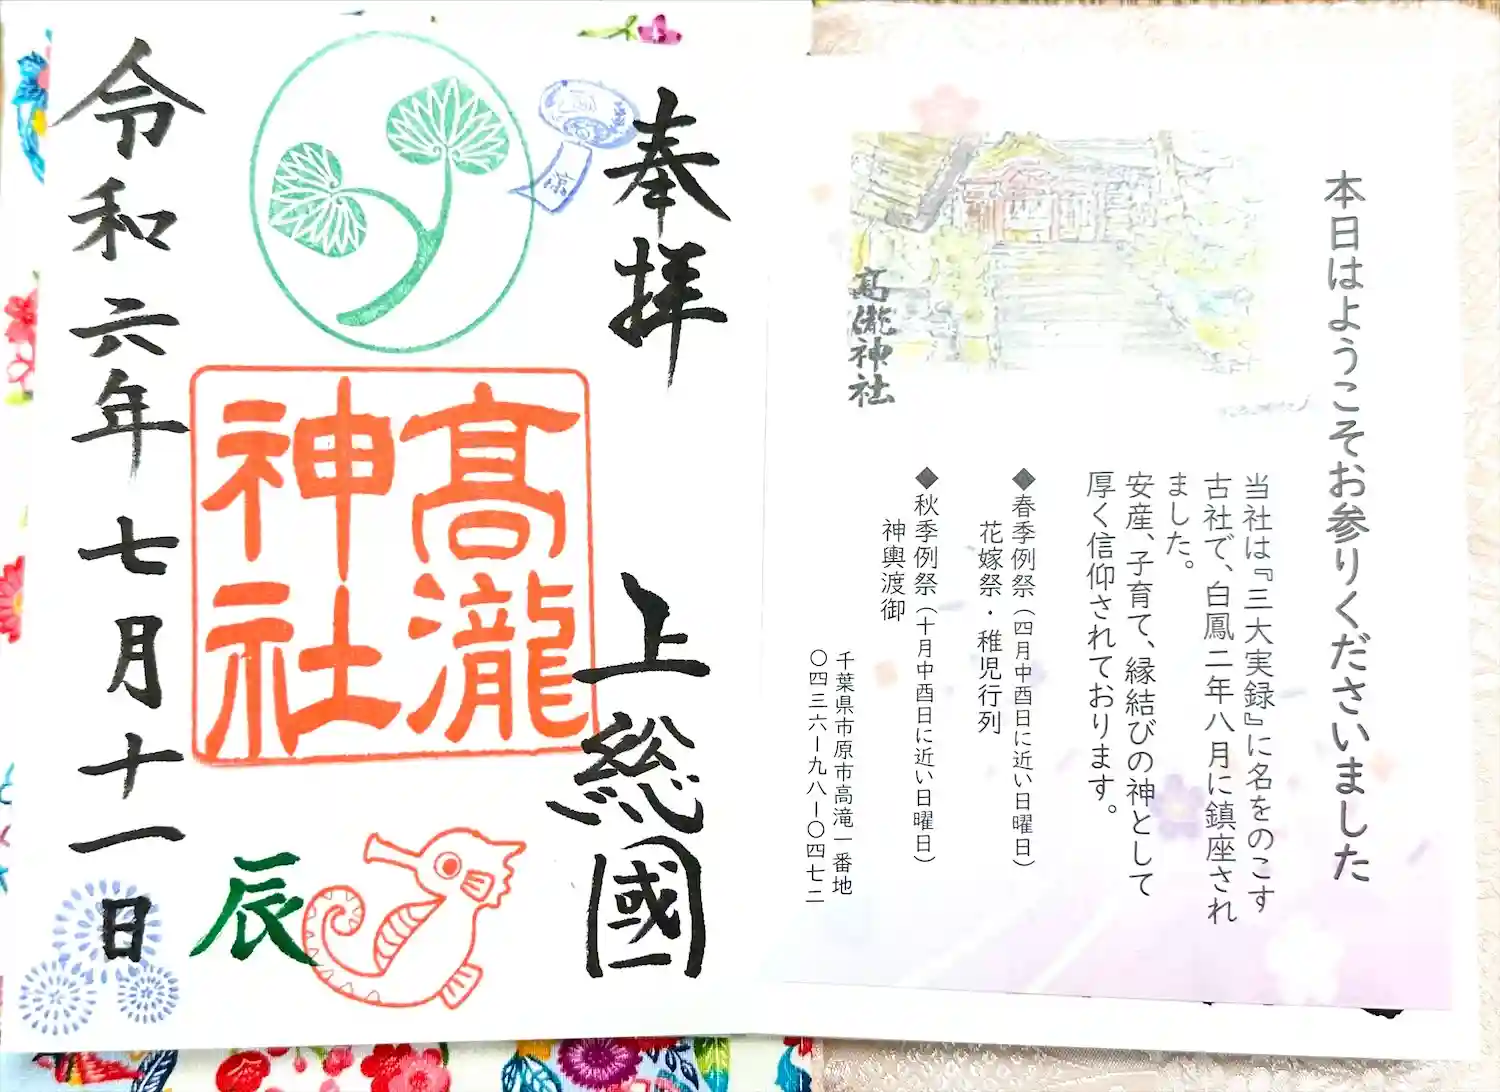 奉拝
上総國
高瀧
神社
辰
令和六年七月十一日
本日はようこそお参りくださいました
髙瀧神社
当社は『三大実録』に名をのこす
古社で、白鳳二年八月に鎮座され
ました。
安産、子育て、縁結びの神として
厚く信仰されております。
◆春季例祭（四月中酉日に近い日曜日）
花嫁祭・稚児行列
◆秋季例祭（十月中酉日に近い日曜日）
神輿渡御
千葉県市原市高滝一番地
〇四三六ー九八ー〇四七二